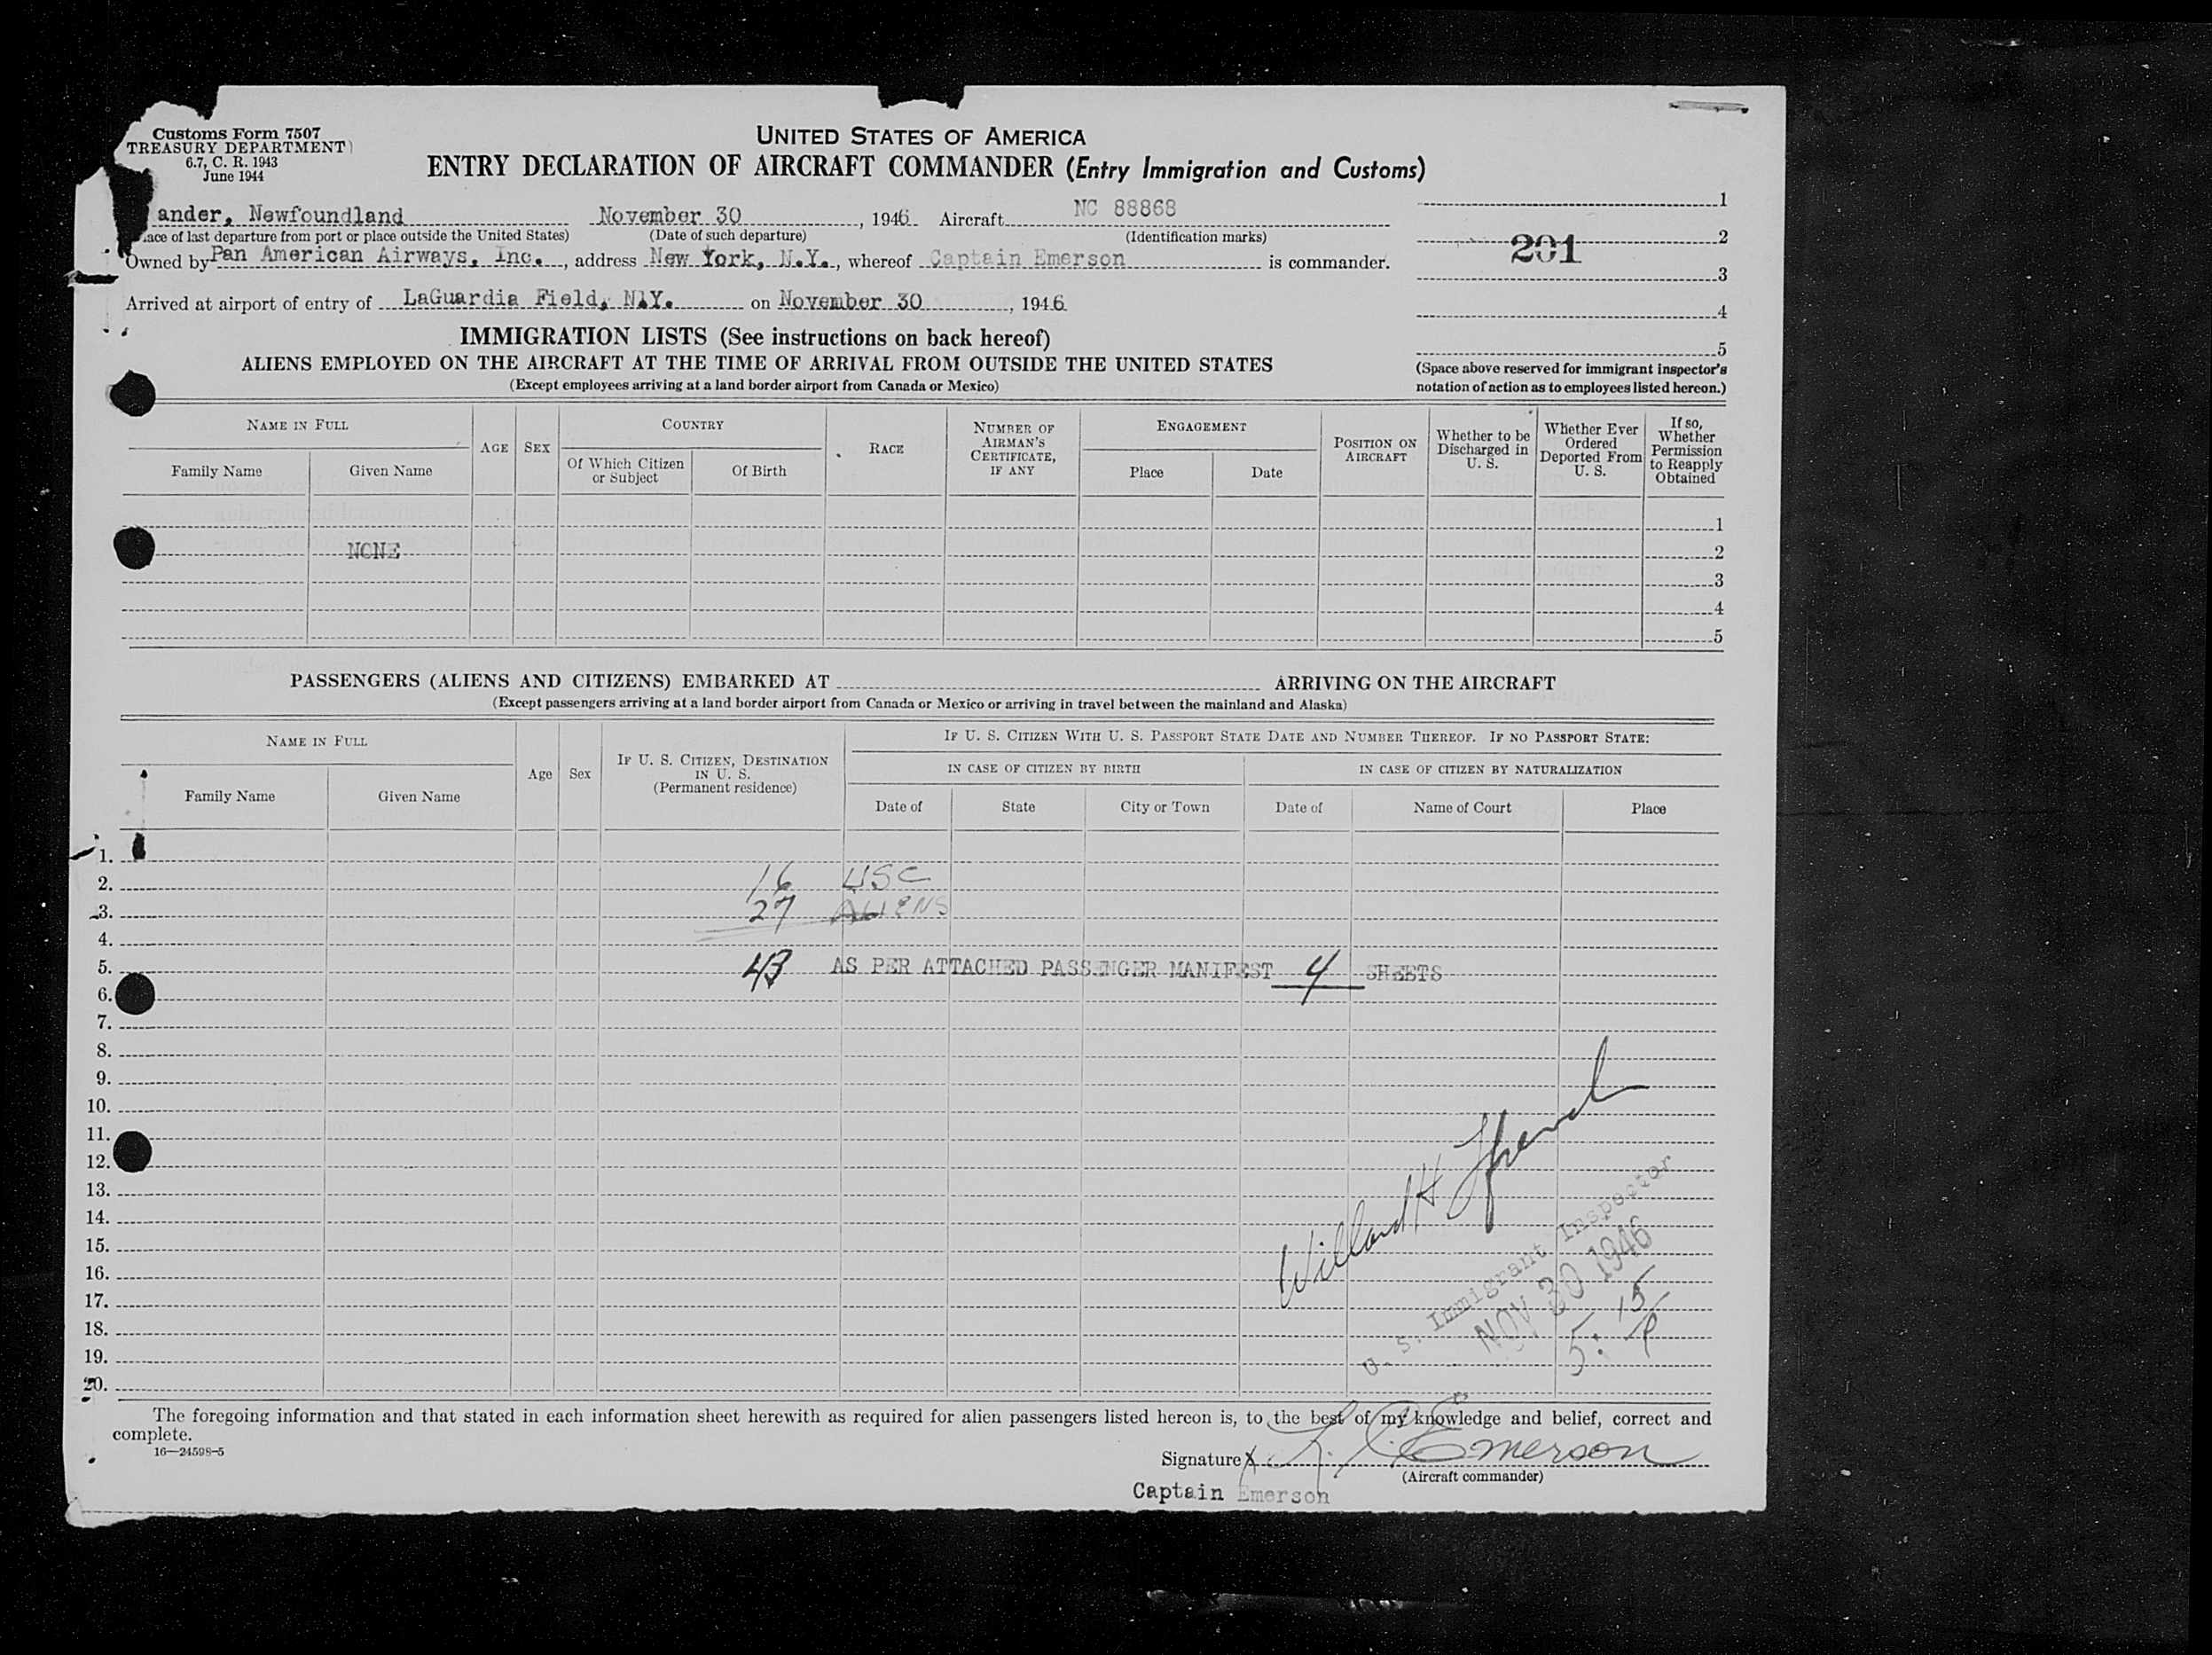 Customs Form 7507
TREASURY DEPARTMENT
6.7, C. R. 1943
June 1944
UNITED STATES OF AMERICA
ENTRY DECLARATION OF AIRCRAFT COMMANDER (Entry Immigration and Customs)
ander, Newfoundland November 30, 1946 Aircraft NC 88868
ace of last departure from port or place outside the United States) (Date of such departure) (Identification marks)
Owned by Pan American Airways, Inc., address New York, N.Y., whereof Captain Emerson is commander.
Arrived at airport of entry of LaGuardia Field, N.Y. on November 30, 1946
1
2
201
3
4
5
(Space above reserved for immigrant inspector's
notation of action as to employees listed hereon.)
IMMIGRATION LISTS (See instructions on back hereof)
ALIENS EMPLOYED ON THE AIRCRAFT AT THE TIME OF ARRIVAL FROM OUTSIDE THE UNITED STATES
(Except employees arriving at a land border airport from Canada or Mexico)
NAME IN FULL
Family Name
Given Name
AGE
SEX
COUNTRY
Of Which Citizen
or Subject
Of Birth
RACE
NUMBER OF
AIRMAN'S
CERTIFICATE,
IF ANY
ENGAGEMENT
Place
Date
POSITION ON
AIRCRAFT
Whether to be
Discharged in
U. S.
Whether Ever
Ordered
Deported From
U. S.
If so,
Whether
Permission
to Reapply
Obtained
1
NONE 2
3
4
5
PASSENGERS (ALIENS AND CITIZENS) EMBARKED AT ARRIVING ON THE AIRCRAFT
(Except passengers arriving at a land border airport from Canada or Mexico or arriving in travel between the mainland and Alaska)
NAME IN FULL
Family Name
Given Name
Age
Sex
IF U. S. CITIZEN, DESTINATION
IN U. S.
(Permanent residence)
IF U. S. CITIZEN WITH U. S. PASSPORT STATE DATE AND NUMBER THEREOF. IF NO PASSPORT STATE:
IN CASE OF CITIZEN BY BIRTH
IN CASE OF CITIZEN BY NATURALIZATION
Date of
State
City or Town
Date of
Name of Court
Place
1.
2. 16 USC
3. 27 ALIENS
4.
5. 43 AS PER ATTACHED PASSENGER MANIFEST 4 SHEETS
6.
7.
8.
9.
10.
11.
12.
13.
14.
15.
16.
17.
18.
19.
20.
Willard H
U. S. Immigrant Inspector
NOV 30 1946
5:15 P
The foregoing information and that stated in each information sheet herewith as required for alien passengers listed hereon is, to the best of my knowledge and belief, correct and
complete.
16—24598-5
Signature X Emerson
(Aircraft commander)
Captain Emerson